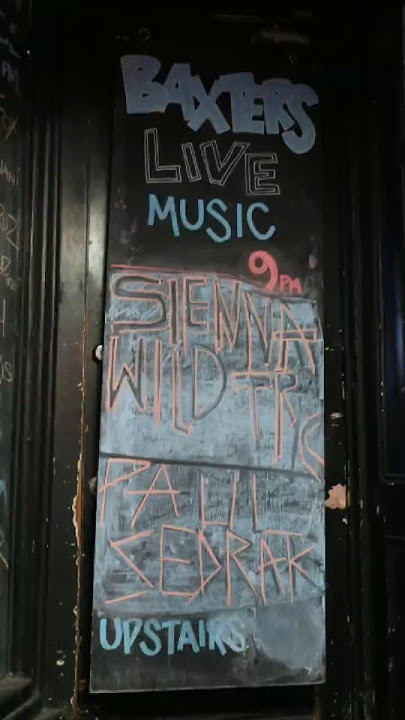 BAXTERS
LIVE
MUSIC
9PM
SIENNA
WILD TRIO
PAUL
SEDRAK
UPSTAIRS